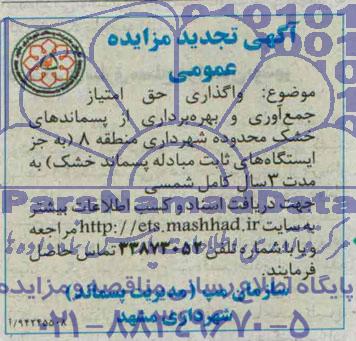 آگهی تجدید مزایده
عمومی
موضوع: واگذاری حق امتیاز
جمع‌آوری و بهره‌برداری از پسماندهای
خشک محدوده شهرداری منطقه ۸ (به جز
ایستگاه‌های ثابت مبادله پسماند خشک) به
مدت ۳ سال کامل شمسی
جهت دریافت اسناد و کسب اطلاعات بیشتر
به سایت http://ets.mashhad.ir مراجعه
ویا با شماره تلفن ۳۳۸۷۳۰۵۲ تماس حاصل
فرمایند.
سازمان مپ (مدیریت پسماند)
شهرداری مشهد
پایگاه اطلاع رسانی مناقصه و مزایده
۰۲۱-۸۸۳۴۹۶۷۰-۵